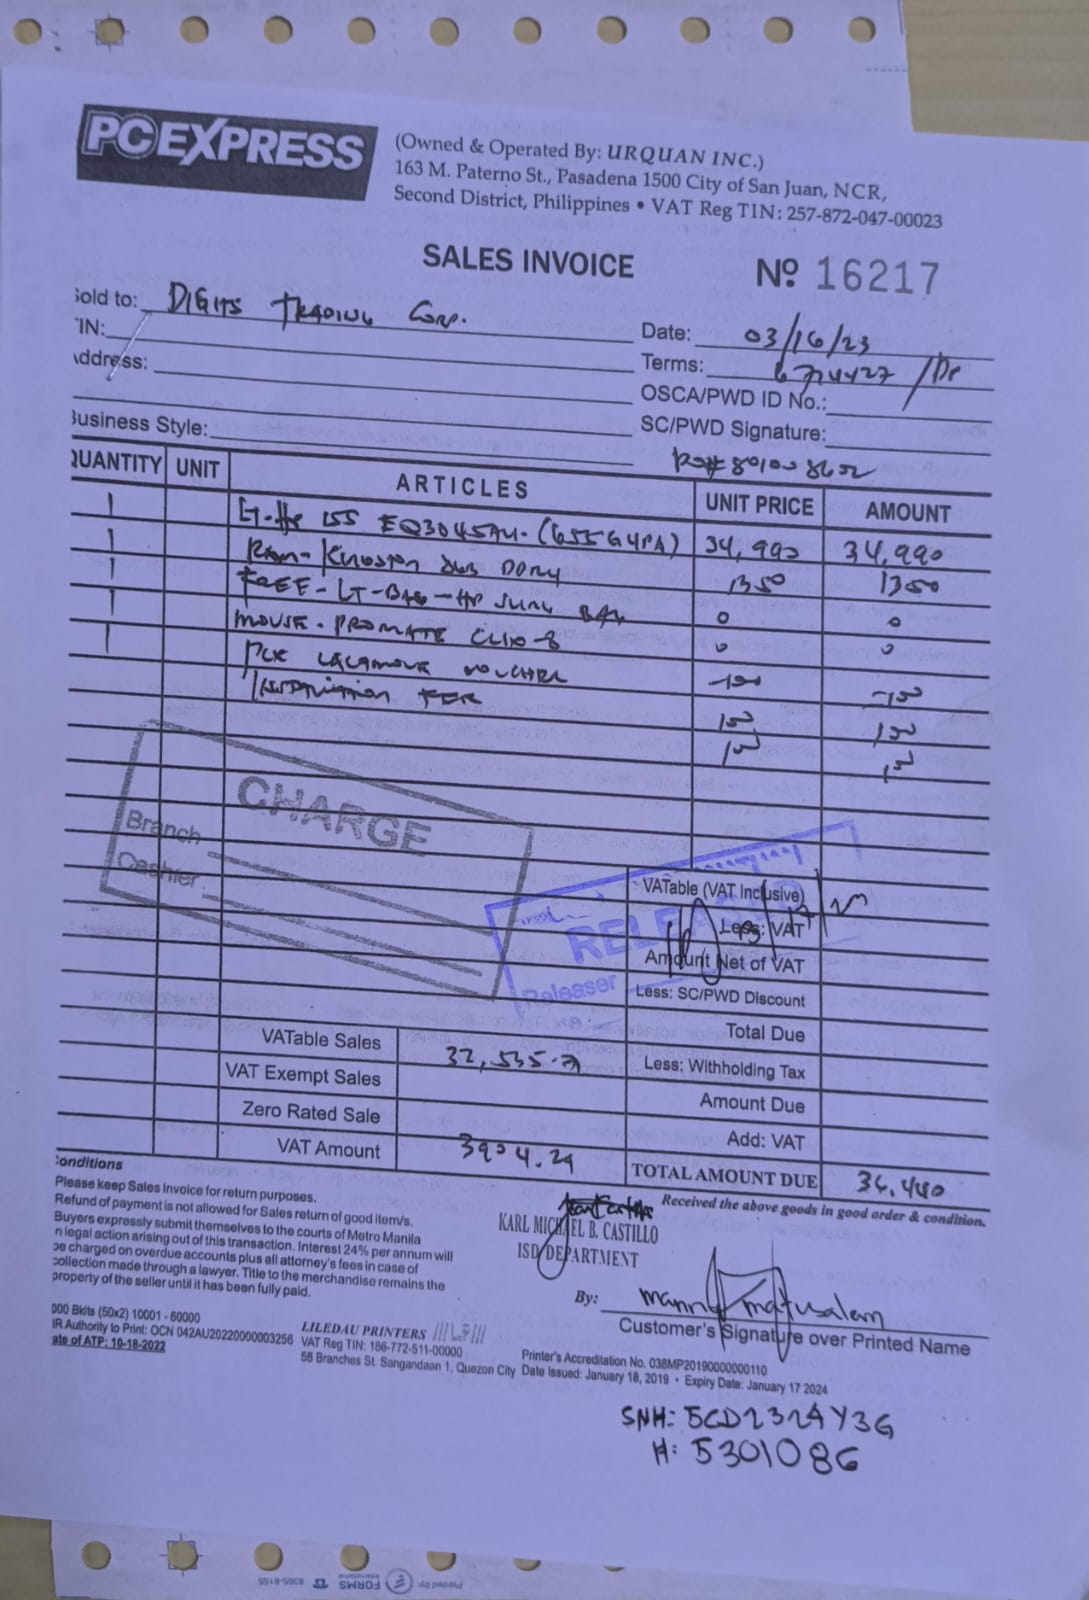 PCEXPRESS
(Owned & Operated By: URQUAN INC.)
163 M. Paterno St., Pasadena 1500 City of San Juan, NCR,
Second District, Philippines • VAT Reg TIN: 257-872-047-00023
SALES INVOICE
Nº 16217
Sold to: DIGITS TRADING CORP.
TIN:
Address:
Business Style:
Date: 03/16/23
Terms:
OSCA/PWD ID No.:
SC/PWD Signature:
QUANTITY UNIT ARTICLES UNIT PRICE AMOUNT
1 34,990 34,990
1 RAM- KINGSTON 1350 1350
1 FREE - LT-BAG-HP 0 0
1 MOUSE - PROMATE CLIO-8 0 0
1 PCX LALAMOVE VOUCHER -100 -100
INSTALLATION FEE 100 100
100 100
CHARGE
Branch
Cashier
RELEASED
Releaser
VATable (VAT Inclusive)
Less: VAT
Amount Net of VAT
Less: SC/PWD Discount
Total Due
Less: Withholding Tax
Amount Due
Add: VAT
TOTAL AMOUNT DUE 36,440
VATable Sales
VAT Exempt Sales
Zero Rated Sale
VAT Amount 3904.29
Conditions
Please keep Sales Invoice for return purposes.
Refund of payment is not allowed for Sales return of good item/s.
Buyers expressly submit themselves to the courts of Metro Manila
n legal action arising out of this transaction. Interest 24% per annum will
be charged on overdue accounts plus all attorney's fees in case of
collection made through a lawyer. Title to the merchandise remains the
property of the seller until it has been fully paid.
Received the above goods in good order & condition.
KARL MICHAEL B. CASTILLO
ISD DEPARTMENT
By:
Customer's Signature over Printed Name
000 Bklts (50x2) 10001 - 60000
IR Authority to Print: OCN 042AU20220000003256
ate of ATP: 10-18-2022
LILEDAU PRINTERS
VAT Reg TIN: 186-772-511-00000
58 Branches St. Sangandaan 1, Quezon City
Printer's Accreditation No. 038MP20190000000110
Date Issued: January 18, 2019 • Expiry Date: January 17 2024
SN#: 5CD2324Y3G
#: 5301086
Printed by FORMS International 8365-8155